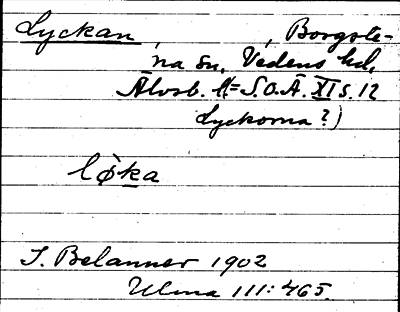 Lyckan, , Borgste-
na sn, Vedens hd,
Älvsb. (= S.O.Ä. XI s. 12
Lyckorna?)
lø̀ka
S. Belanner 1902
Ulma 111:465.